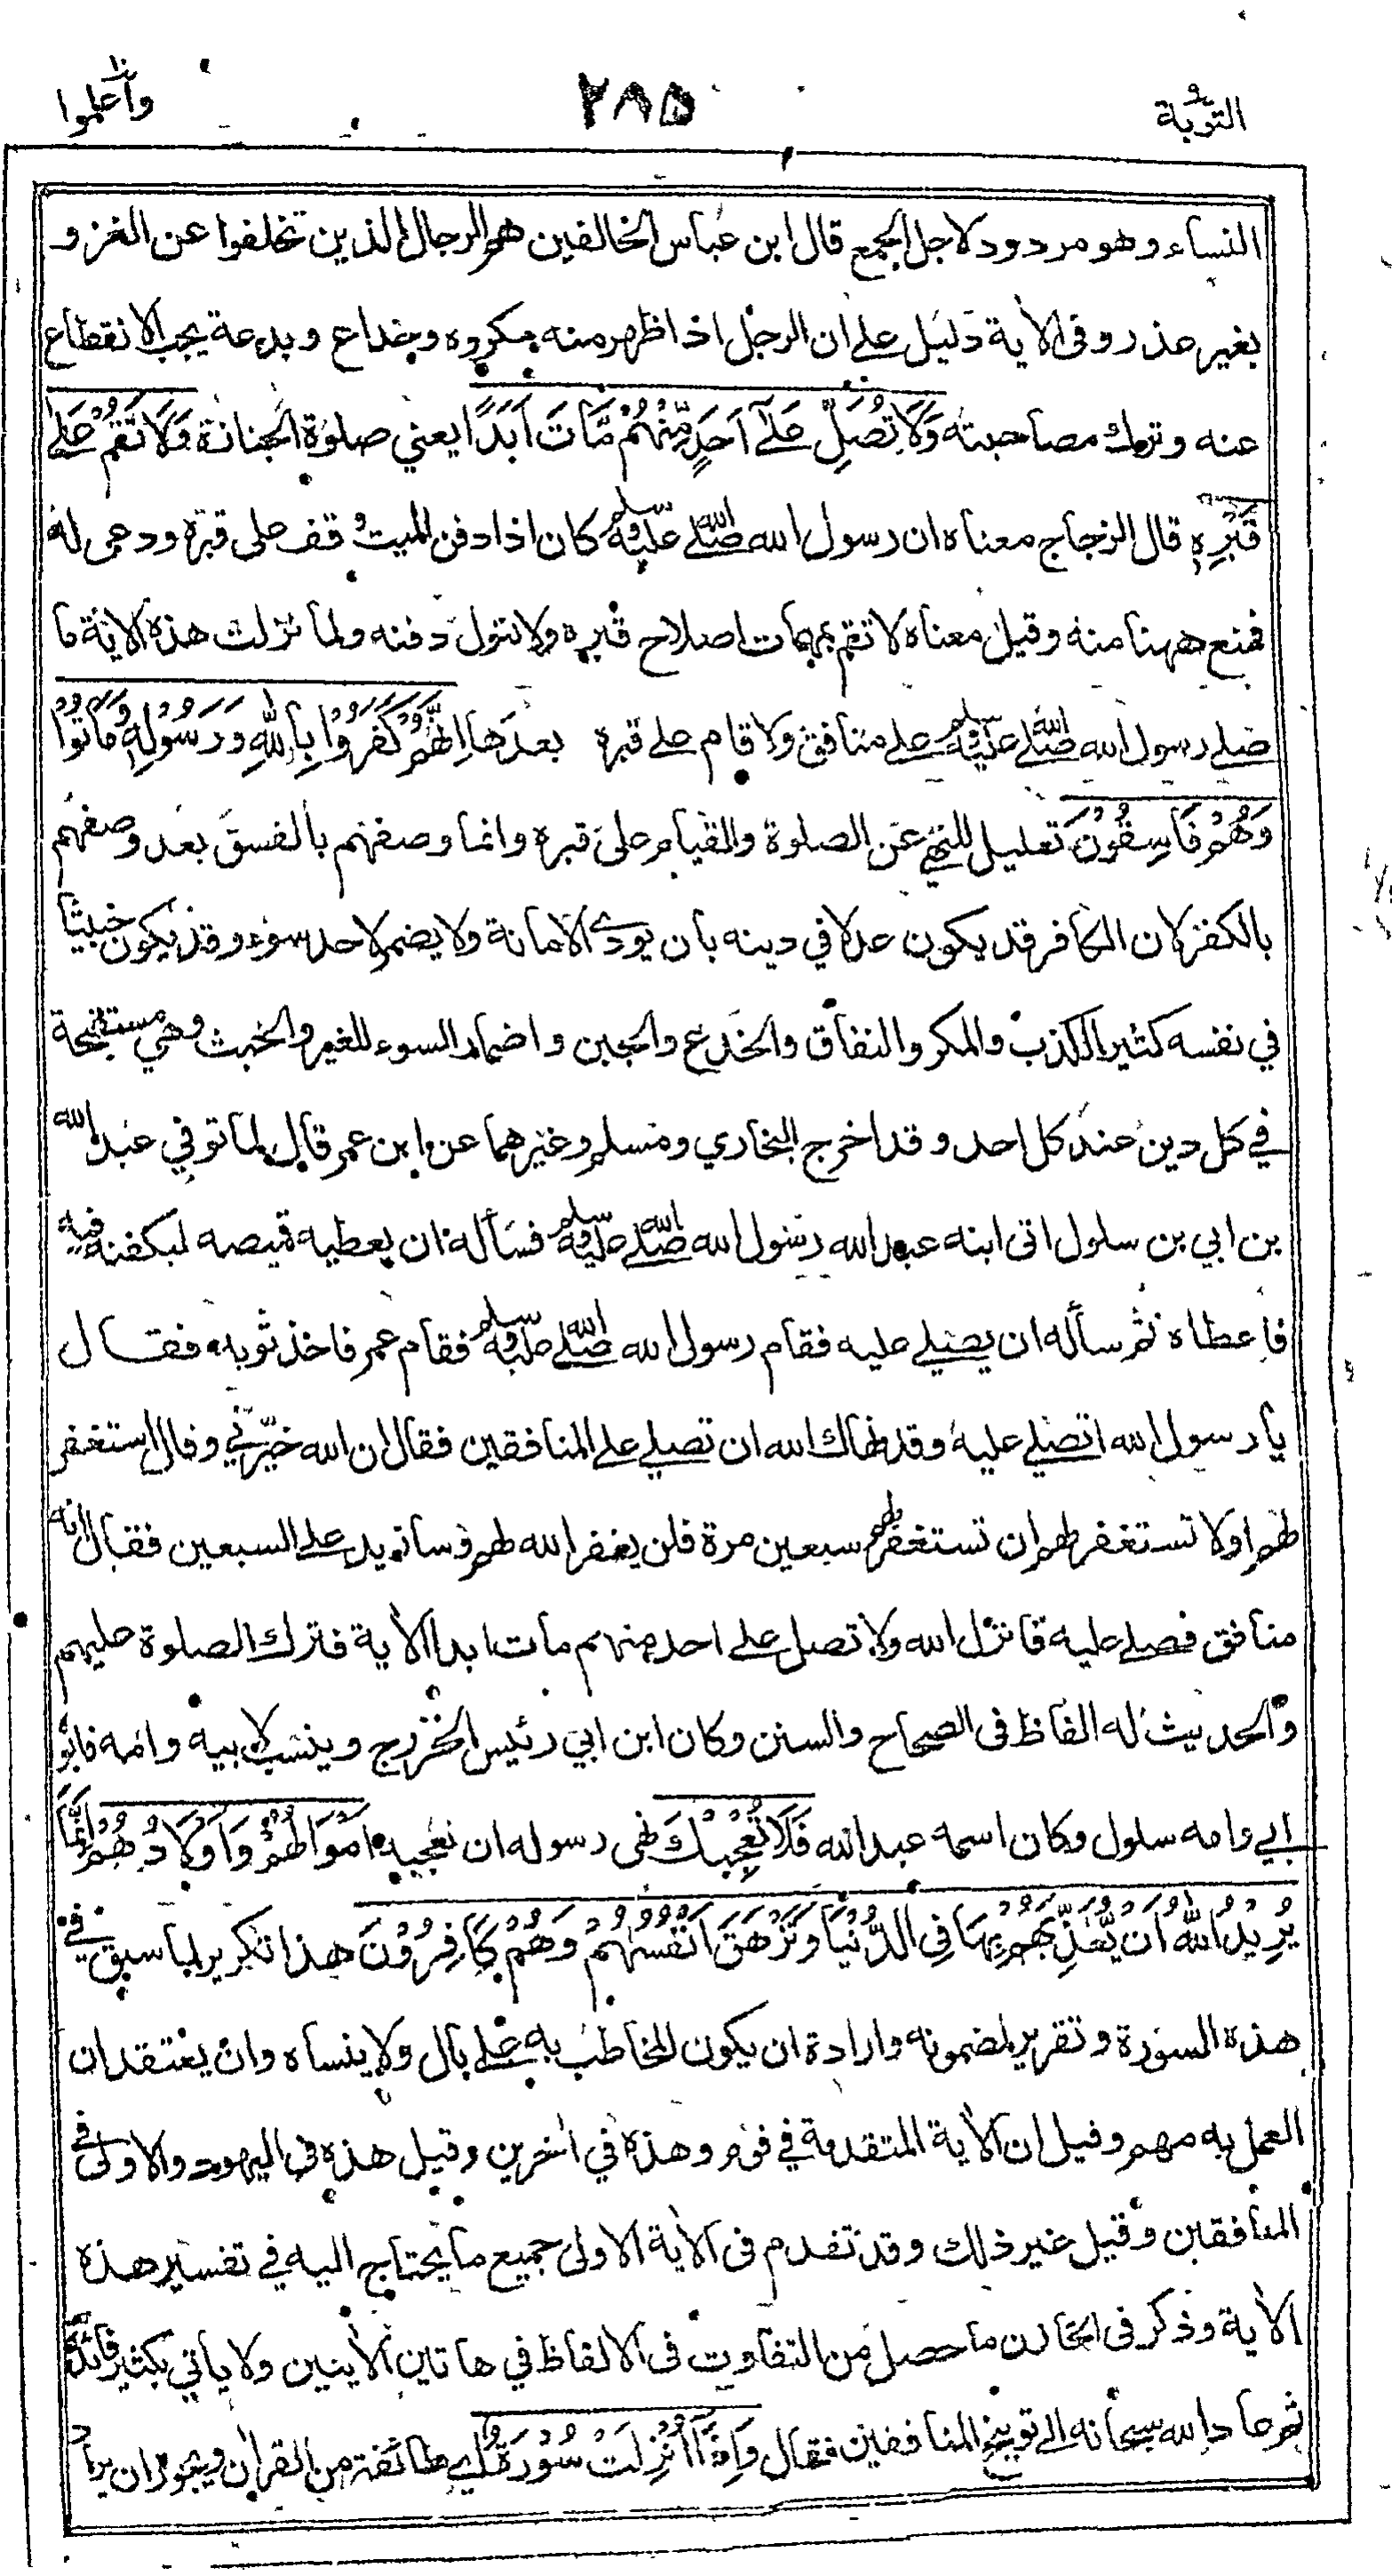 التوبة ٩
٢٨٥
واعلموا ١٠
النساء وهو مردود لاجل الجمع قال ابن عباس الخالفين هم الرجال الذين تخلفوا عن الغزو
بغير عذر وفى الاٰية دليل على ان الرجل اذا ظهر منه مكروه وخداع وبدعة يجب الانقطاع
عنه وترك مصاحبته وَلَا تُصَلِّ عَلٰٓى اَحَدٍ مِّنْهُمْ مَّاتَ اَبَدًا يعني صلوة الجنازة وَلَا تَقُمْ عَلٰى
قَبْرِهٖ قال الزجاج معناه ان رسول الله صلى الله عليه وسلم كان اذا دفن الميت وقف على قبره ودعى له
فمنع ههنا منه وقيل معناه لا تقم بمهمات اصلاح قبره ولا تتول دفنه ولما نزلت هذه الاٰية ما
صلى رسول الله صلى الله عليه وسلم على منافق ولا قام على قبره بعدها اِنَّهُمْ كَفَرُوْا بِاللّٰهِ وَرَسُوْلِهٖ وَمَاتُوْا
وَهُمْ فَاسِقُوْنَ تعليل للنهي عن الصلوة والقيام على قبره وانما وصفهم بالفسق بعد وصفهم
بالكفر لان الكافر قد يكون عدلا في دينه بان يودى الامانة ولا يضمر لاحد سوء وقد يكون خبيثا
في نفسه كثير الكذب والمكر والنفاق والخدع والجبن واضمار السوء للغير والخبث وهي مستقبحة
في كل دين عند كل احد وقد اخرج البخاري ومسلم وغيرهما عن ابن عمر قال لما توفي عبد الله
بن ابي بن سلول اتى ابنه عبد الله رسول الله صلى الله عليه وسلم فسأله ان يعطيه قميصه ليكفنه فيه
فاعطاه ثم سأله ان يصلى عليه فقام رسول الله صلى الله عليه وسلم فقام عمر فاخذ ثوبه فقال
يا رسول الله اتصلى عليه وقد نهاك الله ان تصلى على المنافقين فقال ان الله خيّرني وقال استغفر
لهم اولا تستغفر لهم ان تستغفر لهم سبعين مرة فلن يغفر الله لهم وسازيد على السبعين فقال انه
منافق فصلى عليه فانزل الله ولا تصل على احد منهم مات ابدا الاٰية فترك الصلوة عليهم
والحديث له الفاظ فى الصحاح والسنن وكان ابن ابي رئيس الخزرج وينسب لابيه وامه فابوه
ابي وامه سلول وكان اسمه عبد الله فَلَا تُعْجِبْكَ نهى رسوله ان تعجبه اَمْوَالُهُمْ وَاَوْلَادُهُمْ اِنَّمَا
يُرِيْدُ اللّٰهُ اَنْ يُّعَذِّبَهُمْ بِهَا فِى الدُّنْيَا وَتَزْهَقَ اَنْفُسُهُمْ وَهُمْ كَافِرُوْنَ هذا تكرير لما سبق في
هذه السورة وتقرير لمضمونه وارادة ان يكون المخاطب به على بال ولا ينساه وان يعتقد ان
العمل به مهم وقيل ان الاٰية المتقدمة في قوم وهذه في اٰخرين وقيل هذه فى اليهود والاولى في
المنافقين وقيل غير ذلك وقد تقدم فى الاٰية الاولى جميع ما يحتاج اليه في تفسير هذه
الاٰية وذكر فى الخازن ما حصل من التفاوت فى الالفاظ في هاتين الاٰيتين ولا ياتي بكثير فائدة
ثم عاد الله سبحانه الى توبيخ المنافقين فقال وَاِذَآ اُنْزِلَتْ سُوْرَةٌ اي طائفة من القراٰن ويجوز ان يراد